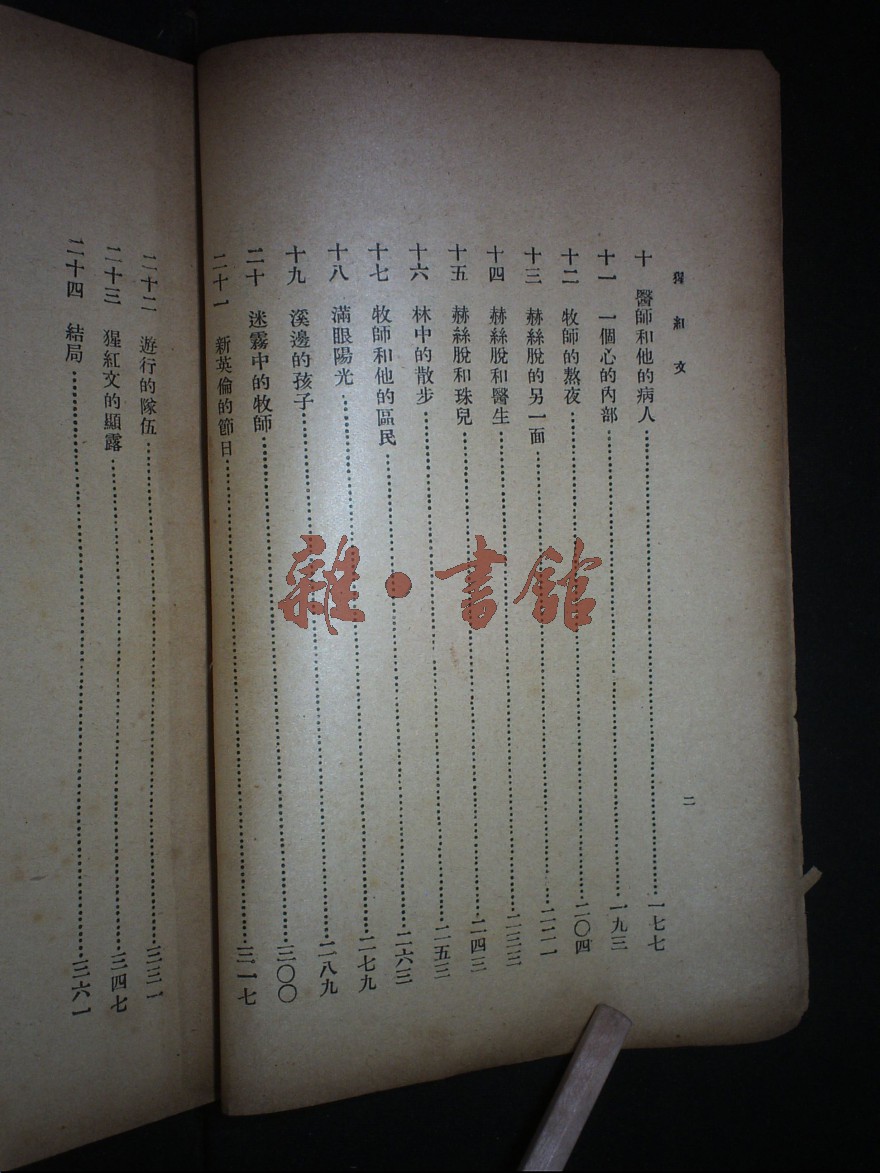 猩紅文
二
十 醫師和他的病人 一七七
十一 一個心的內部 一九三
十二 牧師的熬夜 二〇四
十三 赫絲脫的另一面 二二一
十四 赫絲脫和醫生 二三三
十五 赫絲脫和珠兒 二四三
十六 林中的散步 二五三
十七 牧師和他的區民 二六三
十八 滿眼陽光 二七九
十九 溪邊的孩子 二八九
二十 迷霧中的牧師 三〇〇
二十一 新英倫的節日 三一七
二十二 遊行的隊伍 三三一
二十三 猩紅文的顯露 三四七
二十四 結局 三六一
雜·書館